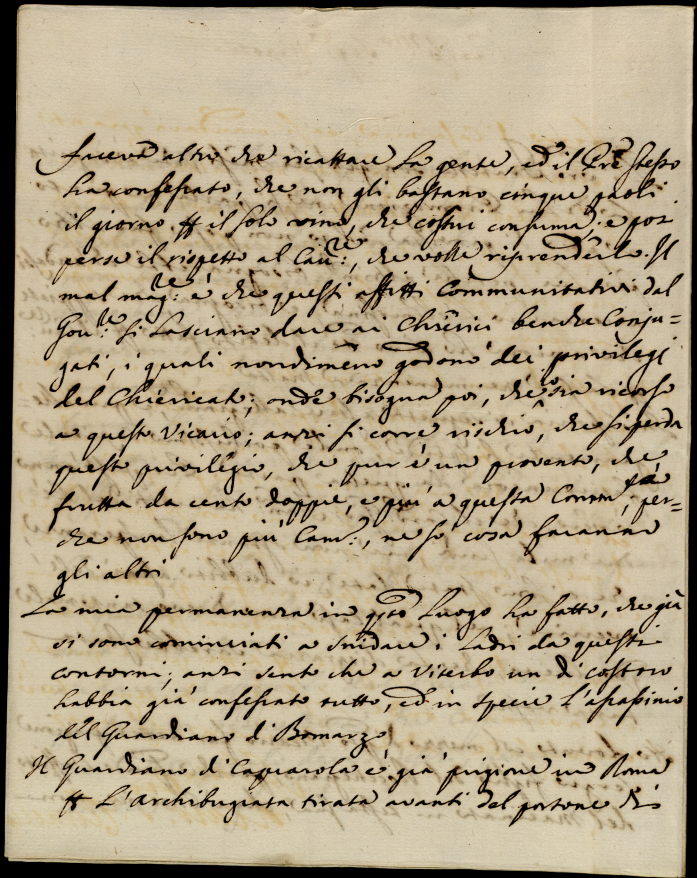 faceva altro che ricattare la gente, ed il Prē stesso
ha confessato, che non gli bastano cinque paoli
il giorno il solo vino, che costui consuma, e poi
perse il rispetto al Cau.re, che volle riprenderlo. Il
mal mag.re è che questi affitti Communitativi dal
Gou.re si lasciano dare ai Chierici benche Conju=
gati, i quali nondimeno godono dei privilegj
del Chiericato; onde bisogna poi, che si sia ricorso
a questo Vicario; anzi si corre rischio, che si perda
questo privilegio, che pur è un provento, che
frutta da cento doppie, e più a questa Comm.tà, per=
che non sono più Cam., ne so cosa faranno
gli altri
La mia permanenza in q͞sto Luogo ha fatto, che già
si sono cominciati a snidare i Ladri da questi
contorni; anzi sento che a Viterbo un di costoro
habbia già confessato tutto, ed in specie l'assassinio
del Guardiano di Bomarzo
Il Guardiano di Caprarola è già prigione in Roma
L'archibugiata tirata avanti del portone di